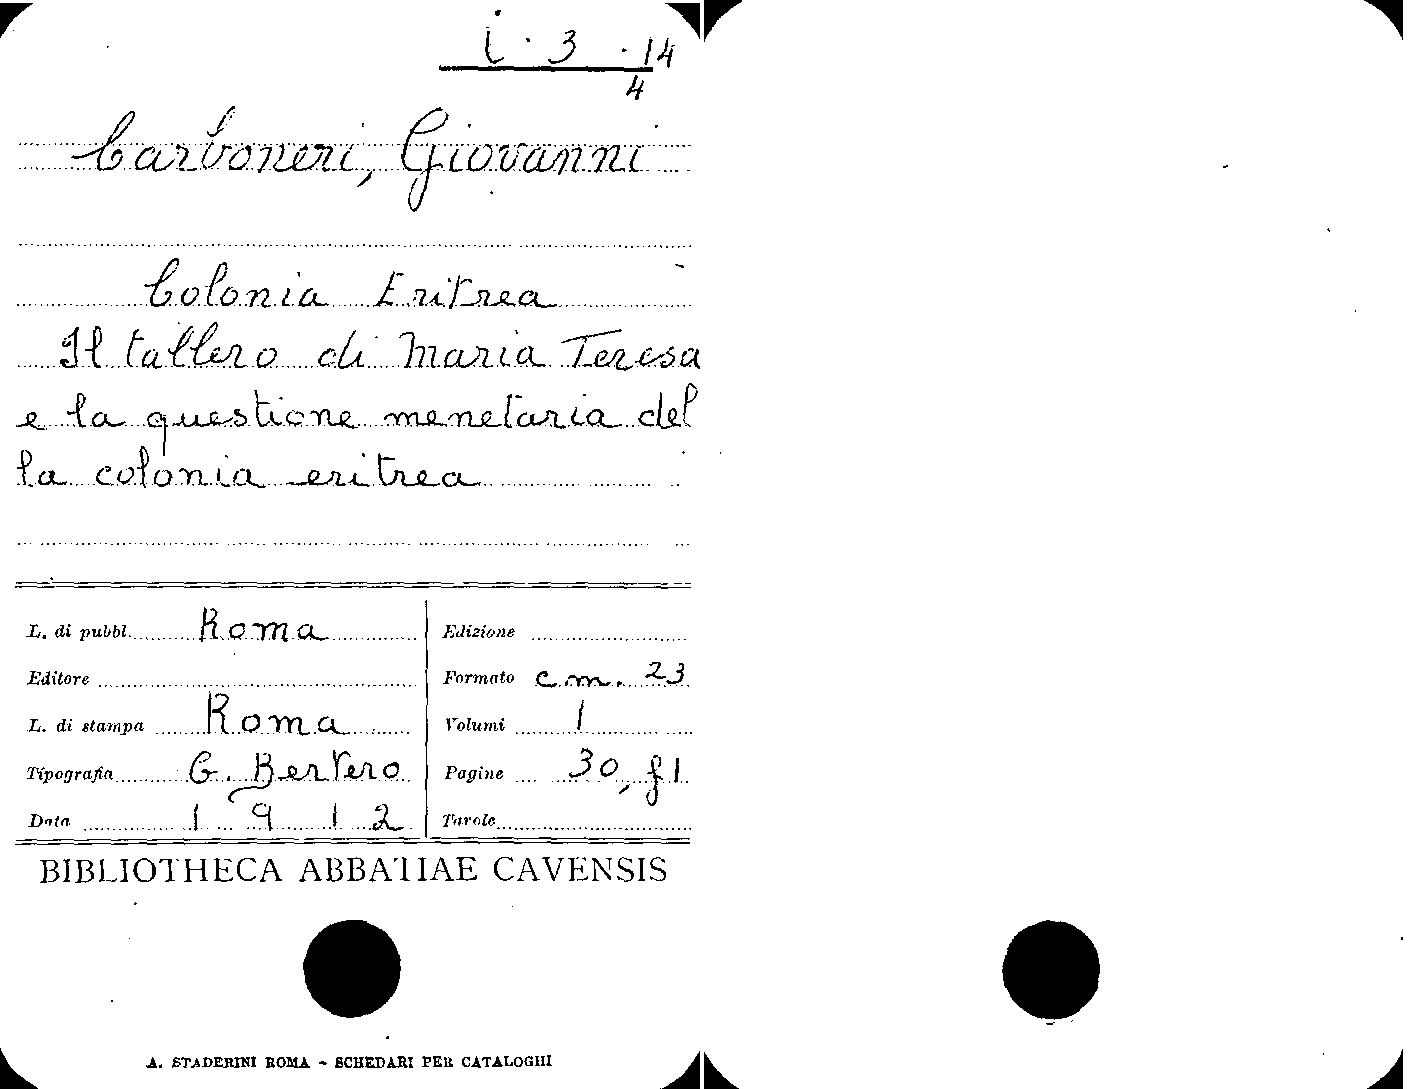 i. 3. 14
4
Carboneri, Giovanni
Colonia Eritrea
Il tallero di Maria Teresa
e la questione menetaria del
la colonia eritrea
L. di pubbl. Roma
Edizione
Editore
Formato cm. 23
L. di stampa Roma
Volumi 1
Tipografia G. Bertero
Pagine 30, f 1
Data 1912
Tavole
BIBLIOTHECA ABBATIAE CAVENSIS
A. STADERINI ROMA - SCHEDARI PER CATALOGHI